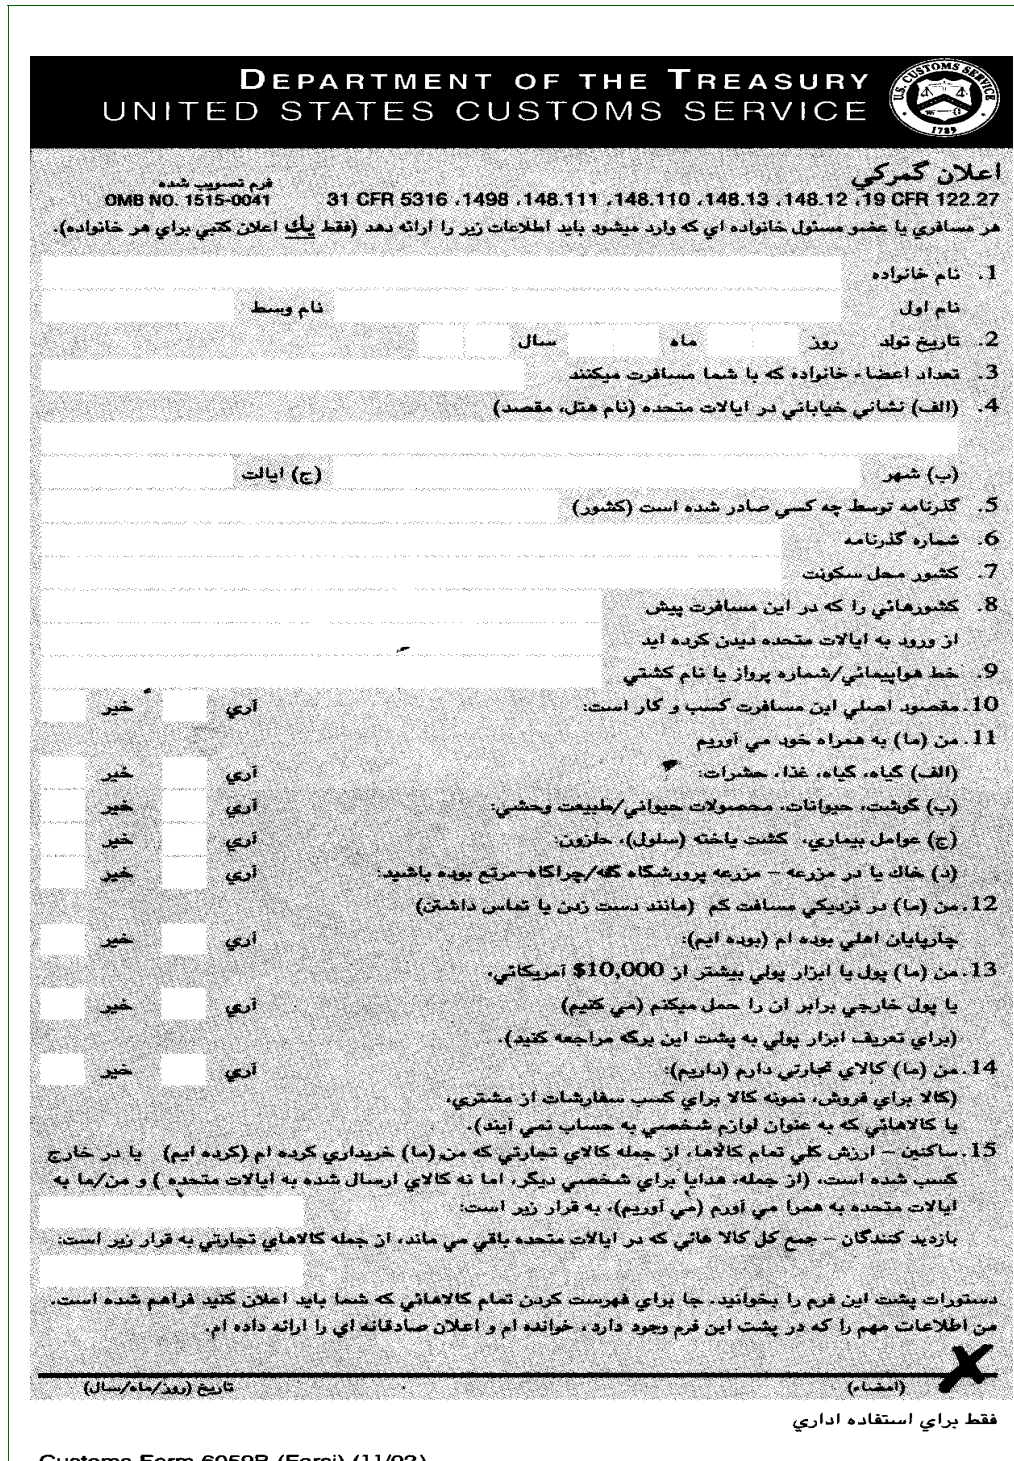 DEPARTMENT OF THE TREASURY
UNITED STATES CUSTOMS SERVICE
U.S. CUSTOMS SERVICE
1789
اعلان گمركي
فرم تصويب شده
19 CFR 122.27, 148.12, 148.13, 148.110, 148.111, 1498, 31 CFR 5316
OMB NO. 1515-0041
هر مسافري يا عضو مسئول خانواده اي كه وارد ميشود بايد اطلاعات زير را ارائه دهد (فقط يك اعلان كتبي براي هر خانواده).
1. نام خانواده
نام اول نام وسط
2. تاريخ تولد روز ماه سال
3. تعداد اعضاء خانواده كه با شما مسافرت ميكنند
4. (الف) نشاني خياباني در ايالات متحده (نام هتل، مقصد)
(ب) شهر (ج) ايالت
5. گذرنامه توسط چه كسي صادر شده است (كشور)
6. شماره گذرنامه
7. كشور محل سكونت
8. كشورهائي را كه در اين مسافرت پيش
از ورود به ايالات متحده ديدن كرده ايد
9. خط هواپيمائي/شماره پرواز يا نام كشتي
10. مقصود اصلي اين مسافرت كسب و كار است: آري خير
11. من (ما) به همراه خود مي آوريم
(الف) گياه، گياه، غذا، حشرات: آري خير
(ب) گوشت، حيوانات، محصولات حيواني/طبيعت وحشي: آري خير
(ج) عوامل بيماري، كشت ياخته (سلول)، حلزون: آري خير
(د) خاك يا در مزرعه – مزرعه پرورشگاه گله/چراگاه-مرتع بوده باشيد: آري خير
12. من (ما) در نزديكي مسافت كم (مانند دست زدن يا تماس داشتن)
چارپايان اهلي بوده ام (بوده ايم): آري خير
13. من (ما) پول يا ابزار پولي بيشتر از $10,000 آمريكائي،
يا پول خارجي برابر ان را حمل ميكنم (مي كنيم) آري خير
(براي تعريف ابزار پولي به پشت اين برگه مراجعه كنيد).
14. من (ما) كالاي تجارتي دارم (داريم): آري خير
(كالا براي فروش، نمونه كالا براي كسب سفارشات از مشتري،
يا كالاهائي كه به عنوان لوازم شخصي به حساب نمي آيند).
15. ساكنين – ارزش كلي تمام كالاها، از جمله كالاي تجارتي كه من (ما) خريداري كرده ام (كرده ايم) يا در خارج
كسب شده است، (از جمله، هدايا براي شخصي ديگر، اما نه كالاي ارسال شده به ايالات متحده ) و من/ما به
ايالات متحده به همرا مي آورم (مي آوريم)، به قرار زير است:
بازديد كنندگان – جمع كل كالا هائي كه در ايالات متحده باقي مي ماند، از جمله كالاهاي تجارتي به قرار زير است:
دستورات پشت اين فرم را بخوانيد. جا براي فهرست كردن تمام كالاهائي كه شما بايد اعلان كنيد فراهم شده است.
من اطلاعات مهم را كه در پشت اين فرم وجود دارد، خوانده ام و اعلان صادقانه اي را ارائه داده ام.
X
(امضاء) تاريخ (روز/ماه/سال)
فقط براي استفاده اداري
Customs Form 6059B (Farsi) (11/02)